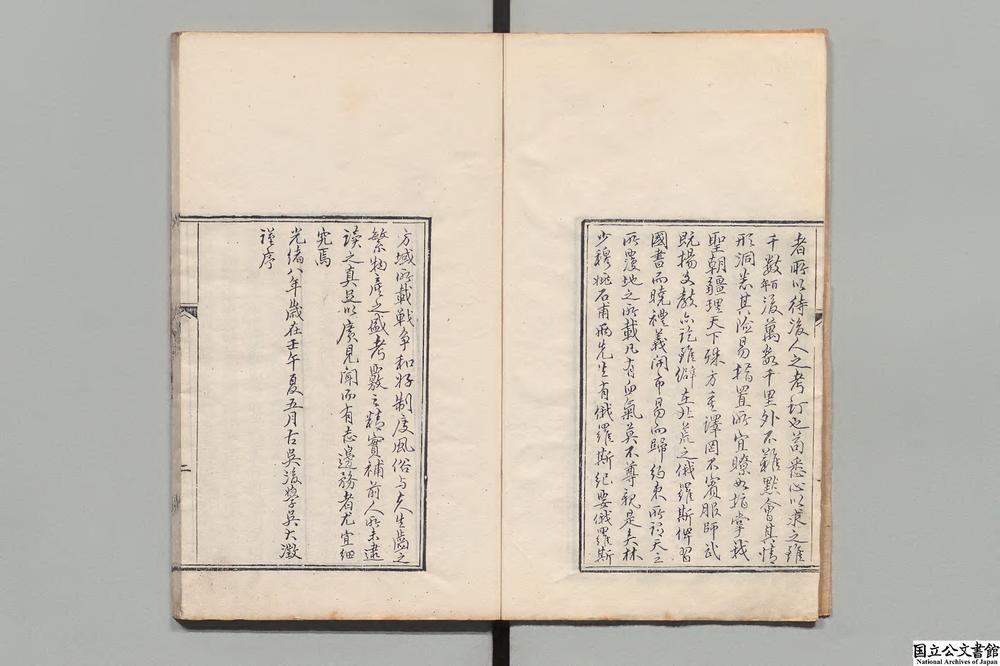 者所以待後人之考訂也苟悉心以求之雖
千數百年後萬數千里外不難默會其情
形洞悉其險易措置所宜瞭如指掌我
聖朝疆理天下殊方重譯罔不賓服師武
既揚文教亦訖雖僻在北荒之俄羅斯俾習
國書而曉禮義開市易而歸約束所謂天之
所覆地之所載凡有血氣莫不尊親是矣林
少穆姚石甫兩先生有俄羅斯紀要俄羅斯
方域所載戰爭和好制度風俗与夫生齒之
繁物產之盛考覈之精實補前人所未逮
讀之真足以廣見聞而有志邊務者尤宜細
究焉
光緒八年歲在壬午夏五月古吳後學吳大澂
謹序
二
国立公文書館
National Archives of Japan